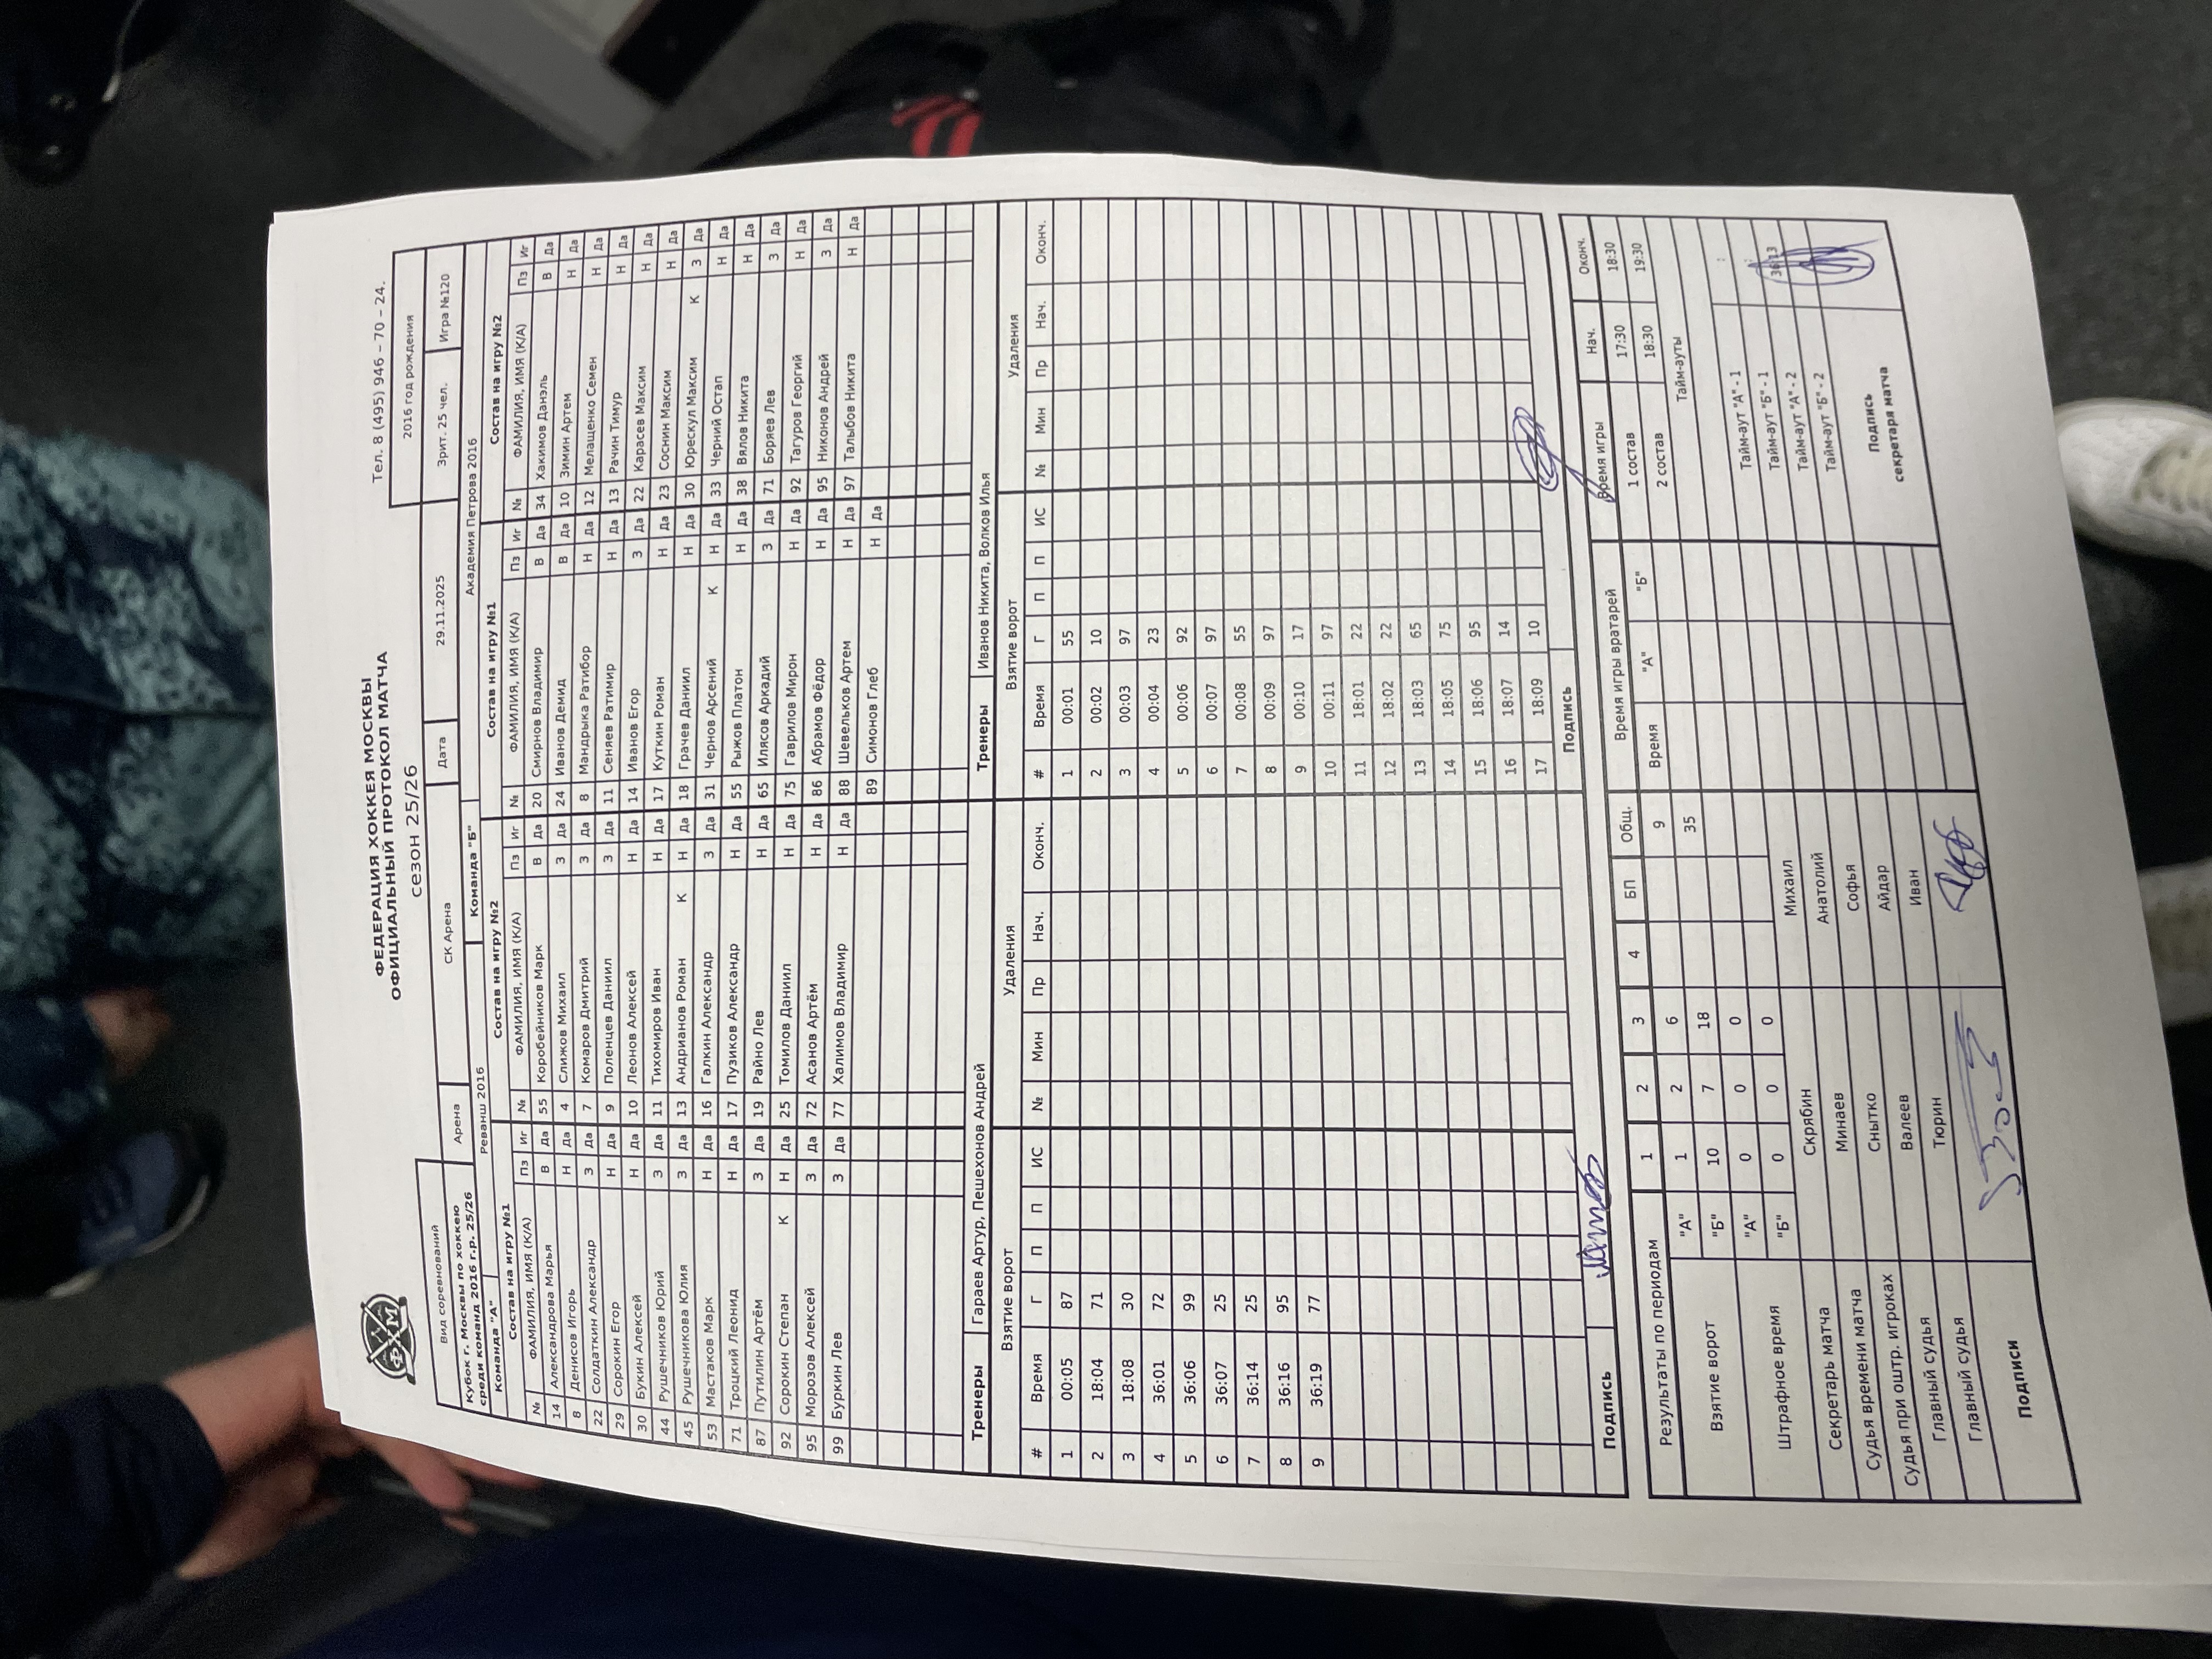 ФХМ
ФЕДЕРАЦИЯ ХОККЕЯ МОСКВЫ
ОФИЦИАЛЬНЫЙ ПРОТОКОЛ МАТЧА
сезон 25/26
Тел. 8 (495) 946 – 70 – 24.
Вид соревнований
2016 год рождения
Кубок г. Москвы по хоккею среди команд 2016 г.р. 25/26
Арена СК Арена Дата 29.11.2025 Зрит. 25 чел. Игра №120
Команда "А" Реванш 2016 Команда "Б" Академия Петрова 2016
Состав на игру №1 Состав на игру №2 Состав на игру №1 Состав на игру №2
№ ФАМИЛИЯ, ИМЯ (К/А) Пз Иг № ФАМИЛИЯ, ИМЯ (К/А) Пз Иг № ФАМИЛИЯ, ИМЯ (К/А) Пз Иг № ФАМИЛИЯ, ИМЯ (К/А) Пз Иг
14 Александрова Марья В Да 55 Коробейников Марк В Да 20 Смирнов Владимир В Да 34 Хакимов Данэль В Да
8 Денисов Игорь Н Да 4 Слижов Михаил З Да 24 Иванов Демид В Да 10 Зимин Артем Н Да
22 Солдаткин Александр З Да 7 Комаров Дмитрий З Да 8 Мандрыка Ратибор Н Да 12 Мелащенко Семен Н Да
29 Сорокин Егор Н Да 9 Поленцев Даниил З Да 11 Сеняев Ратимир Н Да 13 Рачин Тимур Н Да
30 Букин Алексей Н Да 10 Леонов Алексей Н Да 14 Иванов Егор З Да 22 Карасев Максим Н Да
44 Рушечников Юрий З Да 11 Тихомиров Иван Н Да 17 Куткин Роман Н Да 23 Соснин Максим Н Да
45 Рушечникова Юлия З Да 13 Андрианов Роман К Н Да 18 Грачев Даниил Н Да 30 Юрескул Максим К З Да
53 Мастаков Марк Н Да 16 Галкин Александр З Да 31 Чернов Арсений К Н Да 33 Черний Остап Н Да
71 Троцкий Леонид Н Да 17 Пузиков Александр Н Да 55 Рыжов Платон Н Да 38 Вялов Никита Н Да
87 Путилин Артём З Да 19 Райно Лев Н Да 65 Илясов Аркадий З Да 71 Боряев Лев З Да
92 Сорокин Степан К Н Да 25 Томилов Даниил Н Да 75 Гаврилов Мирон Н Да 92 Тагуров Георгий Н Да
95 Морозов Алексей З Да 72 Асанов Артём Н Да 86 Абрамов Фёдор Н Да 95 Никонов Андрей З Да
99 Буркин Лев З Да 77 Халимов Владимир Н Да 88 Шевельков Артем Н Да 97 Талыбов Никита Н Да
89 Симонов Глеб Н Да
Тренеры Гараев Артур, Пешехонов Андрей Тренеры Иванов Никита, Волков Илья
Взятие ворот Удаления Взятие ворот Удаления
# Время Г П П ИС № Мин Пр Нач. Оконч. # Время Г П П ИС № Мин Пр Нач. Оконч.
1 00:05 87 1 00:01 55
2 18:04 71 2 00:02 10
3 18:08 30 3 00:03 97
4 36:01 72 4 00:04 23
5 36:06 99 5 00:06 92
6 36:07 25 6 00:07 97
7 36:14 25 7 00:08 55
8 36:16 95 8 00:09 97
9 36:19 77 9 00:10 17
10 00:11 97
11 18:01 22
12 18:02 22
13 18:03 65
14 18:05 75
15 18:06 95
16 18:07 14
17 18:09 10
Подпись Подпись
Результаты по периодам 1 2 3 4 БП Общ. Время игры вратарей Время игры Нач. Оконч.
Взятие ворот "А" 1 2 6 9 Время "А" "Б" 1 состав 17:30 18:30
"Б" 10 7 18 35 2 состав 18:30 19:30
Штрафное время "А" 0 0 0 Тайм-ауты
"Б" 0 0 0
Тайм-аут "А" - 1 :
Секретарь матча Скрябин Михаил Тайм-аут "Б" - 1 36:13
Судья времени матча Минаев Анатолий Тайм-аут "А" - 2
Судья при оштр. игроках Снытко Софья Тайм-аут "Б" - 2
Главный судья Валеев Айдар Подпись
Главный судья Тюрин Иван секретаря матча
Подписи